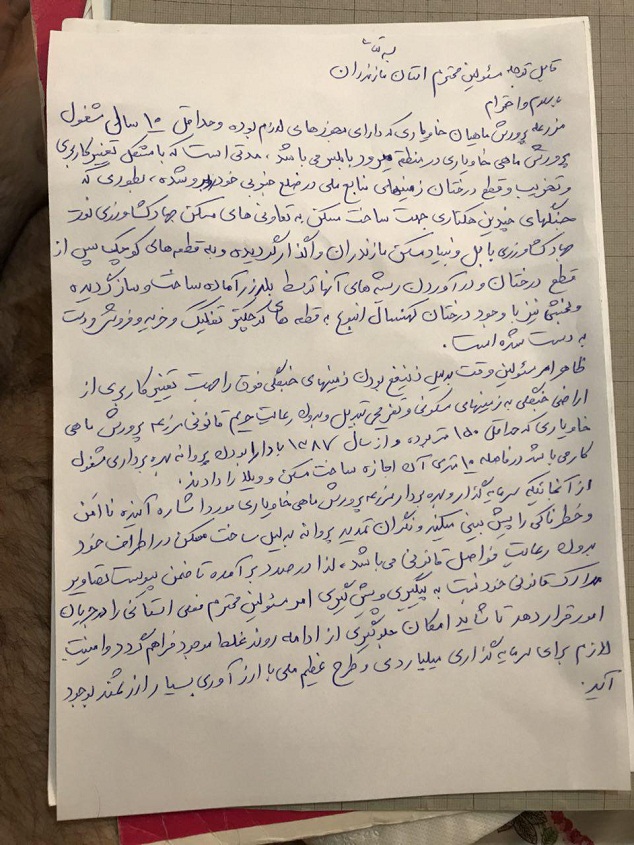 قابل توجه مسئولین محترم استان مازندران
با سلام و احترام
مزرعه پرورش ماهیان خاویاری که دارای مجوزهای لازم بوده و حداقل ۱۵ سال مشغول
پرورش ماهی خاویاری در منطقه بابلسر می باشد، مدتی است که با مشکل تغییر کاربری
و تخریب و قطع درختان زمینهای منابع ملی در ضلع جنوبی خود روبرو شده، بطوری که
جنگلهای چندین هکتاری جهت ساخت مسکن به تعاونی های مسکن جهاد کشاورزی نور
جهاد کشاورزی بابل و بنیاد مسکن مازندران واگذار گردیده و به قطعه های کوچک پس از
قطع درختان و در آوردن ریشه های آنها توسط بلدوزر آماده ساخت و ساز گردیده
و بخشی نیز با وجود درختان کهنسال انبوه به قطعه های کوچکتر تفکیک و خرید و فروش و دست
به دست شده است.
ظاهرا مسئولین وقت بدلیل ذینفع بودن زمینهای جنگلی فوق را جهت تغییر کاربری از
اراضی جنگلی به زمینهای مسکونی و تفریحی تبدیل و بدون رعایت حریم قانونی مزرعه پرورش ماهی
خاویاری که حداقل ۱۵۰ متر بوده و از سال ۱۳۸۷ با دارا بودن پروانه بهره برداری مشغول
کار می باشد در فاصله ۱۰ متری آن اجازه ساخت مسکن و ویلا را دادند.
از آنجائیکه سرمایه گذار و بهره بردار مزرعه پرورش ماهی خاویاری مورد اشاره آینده نا امن
و خطرناکی را پیش بینی میکند و نگران تمدید پروانه بدلیل ساخت مسکن در اطراف خود
بدون رعایت فواصل قانونی می باشد، لذا در صدد بر آمده تا ضمن پیوست تصاویر
مدارک قانونی خود نسبت به پیگیری و پیش گیری امر مسئولین محترم فعلی استانی را در جریان
امور قرار دهد تا شاید امکان جلوگیری از ادامه روند غلط موجود فراهم گردد و امنیت
لازم برای سرمایه گذاری میلیاردی و طرح عظیم ملی با ارز آوری بسیار ارزشمند بوجود
آید.